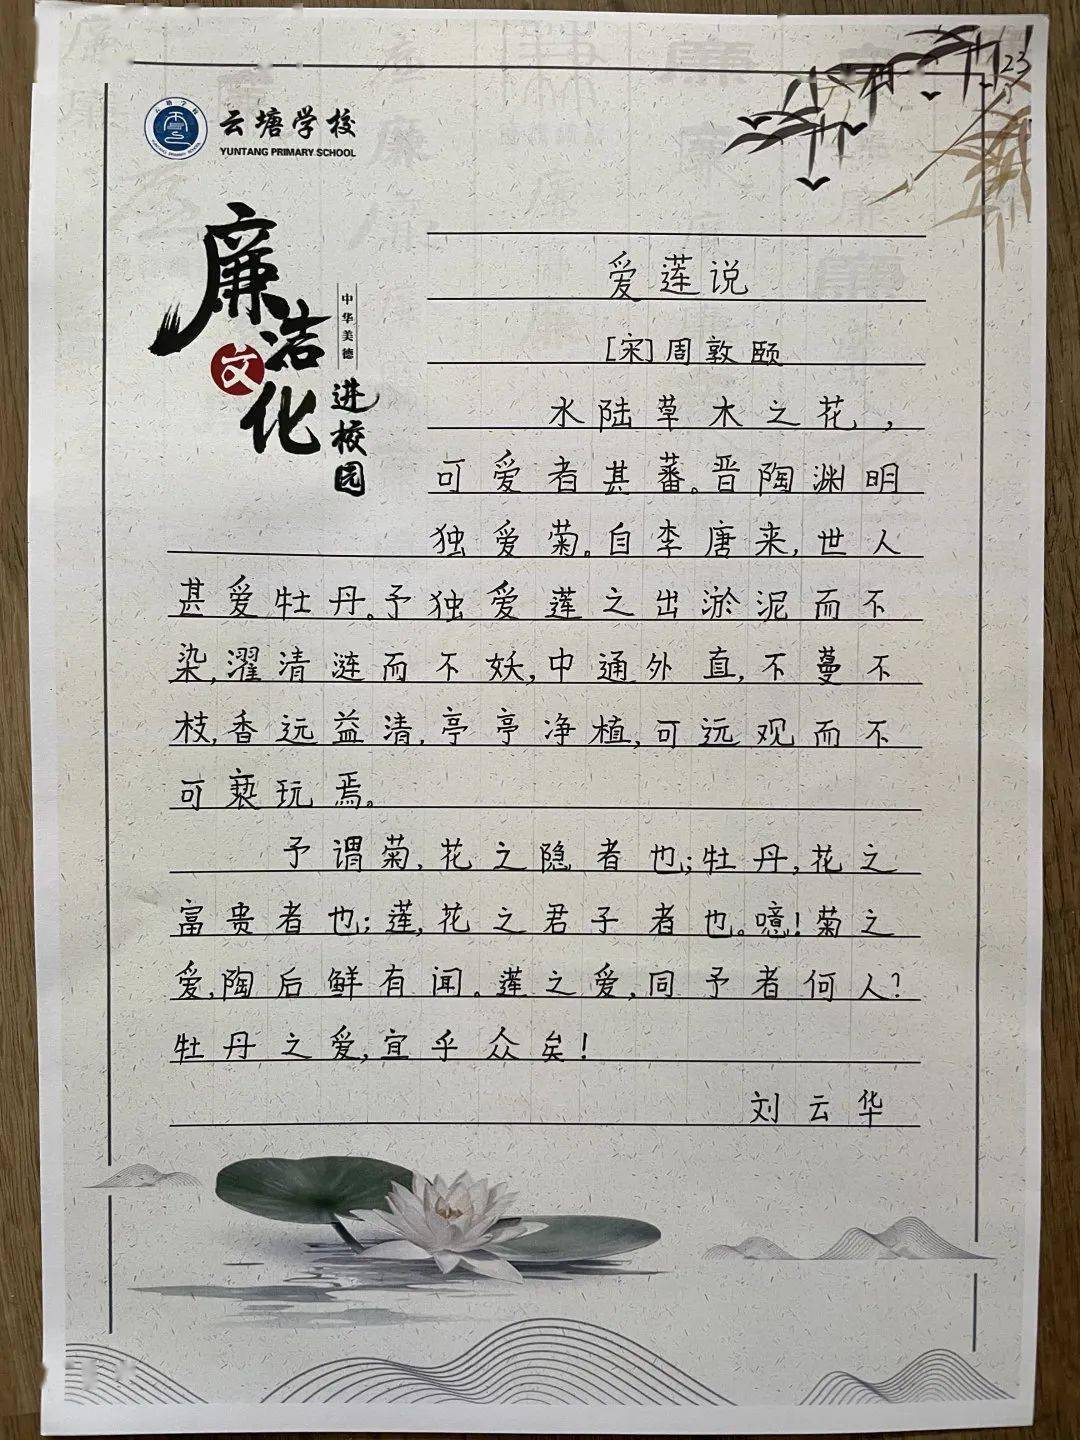 23
云塘学校
YUNTANG PRIMARY SCHOOL
廉洁文化
中华美德
进校园
爱莲说
[宋]周敦颐
水陆草木之花,
可爱者甚蕃。晋陶渊明
独爱菊。自李唐来,世人
甚爱牡丹。予独爱莲之出淤泥而不
染,濯清涟而不妖,中通外直,不蔓不
枝,香远益清,亭亭净植,可远观而不
可亵玩焉。
予谓菊,花之隐者也;牡丹,花之
富贵者也;莲,花之君子者也。噫!菊之
爱,陶后鲜有闻。莲之爱,同予者何人?
牡丹之爱,宜乎众矣!
刘云华